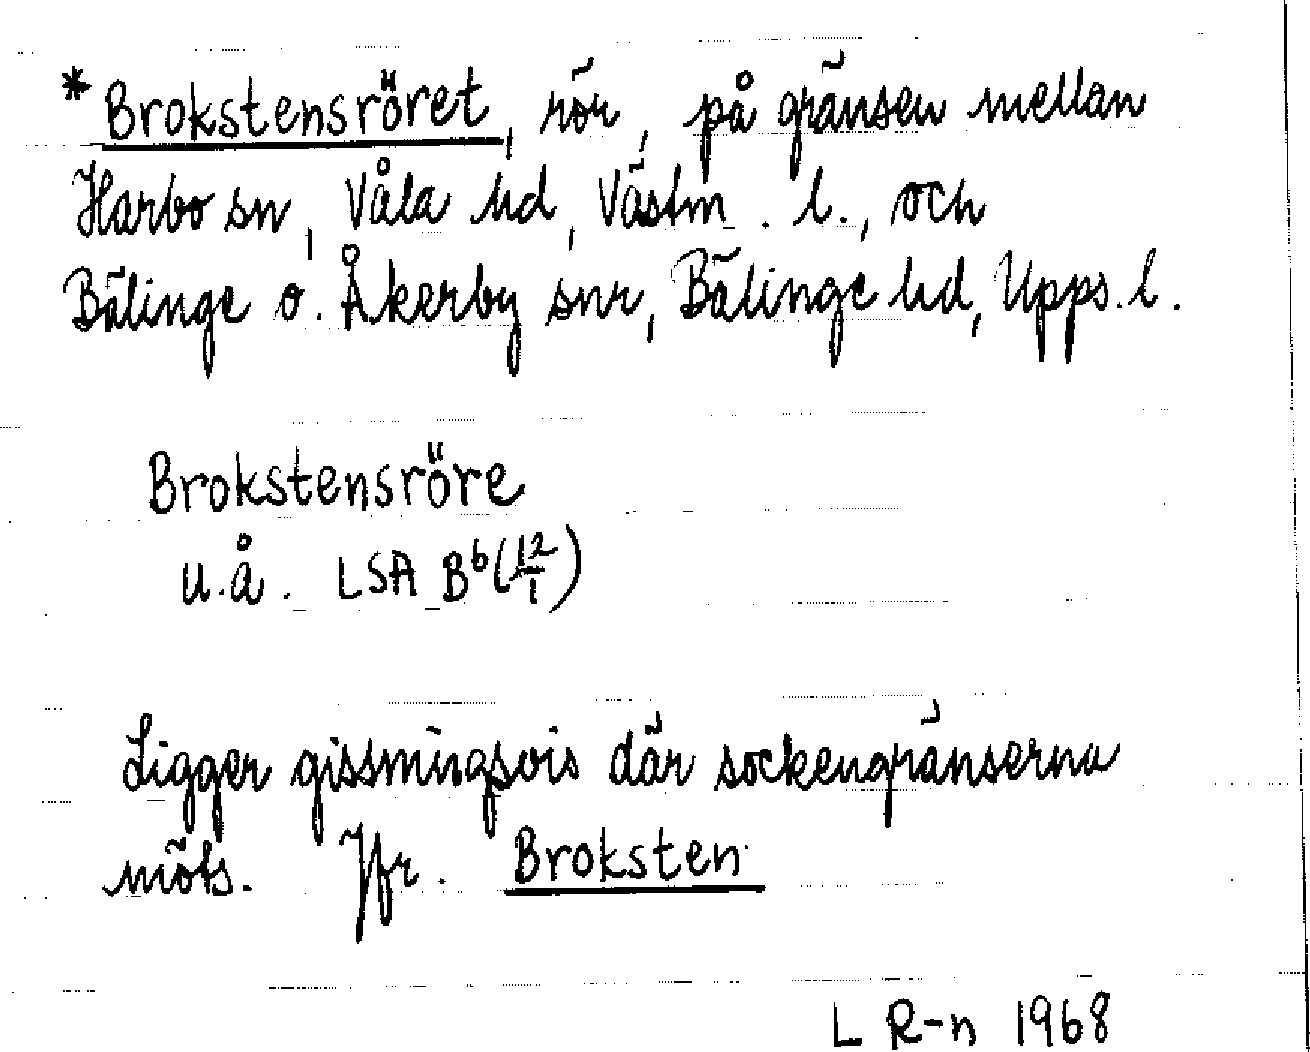 * Brokstensröret, rör, på gränsen mellan
Harbo sn, Våla hd, Västm. l., och
Bälinge o. Åkerby snr, Bälinge hd, Upps. l.
Brokstensröre
u.å. LSA B⁶ (12/1)
Ligger gissningsvis där sockengränserna
möts. Jfr. Broksten
L R-n 1968